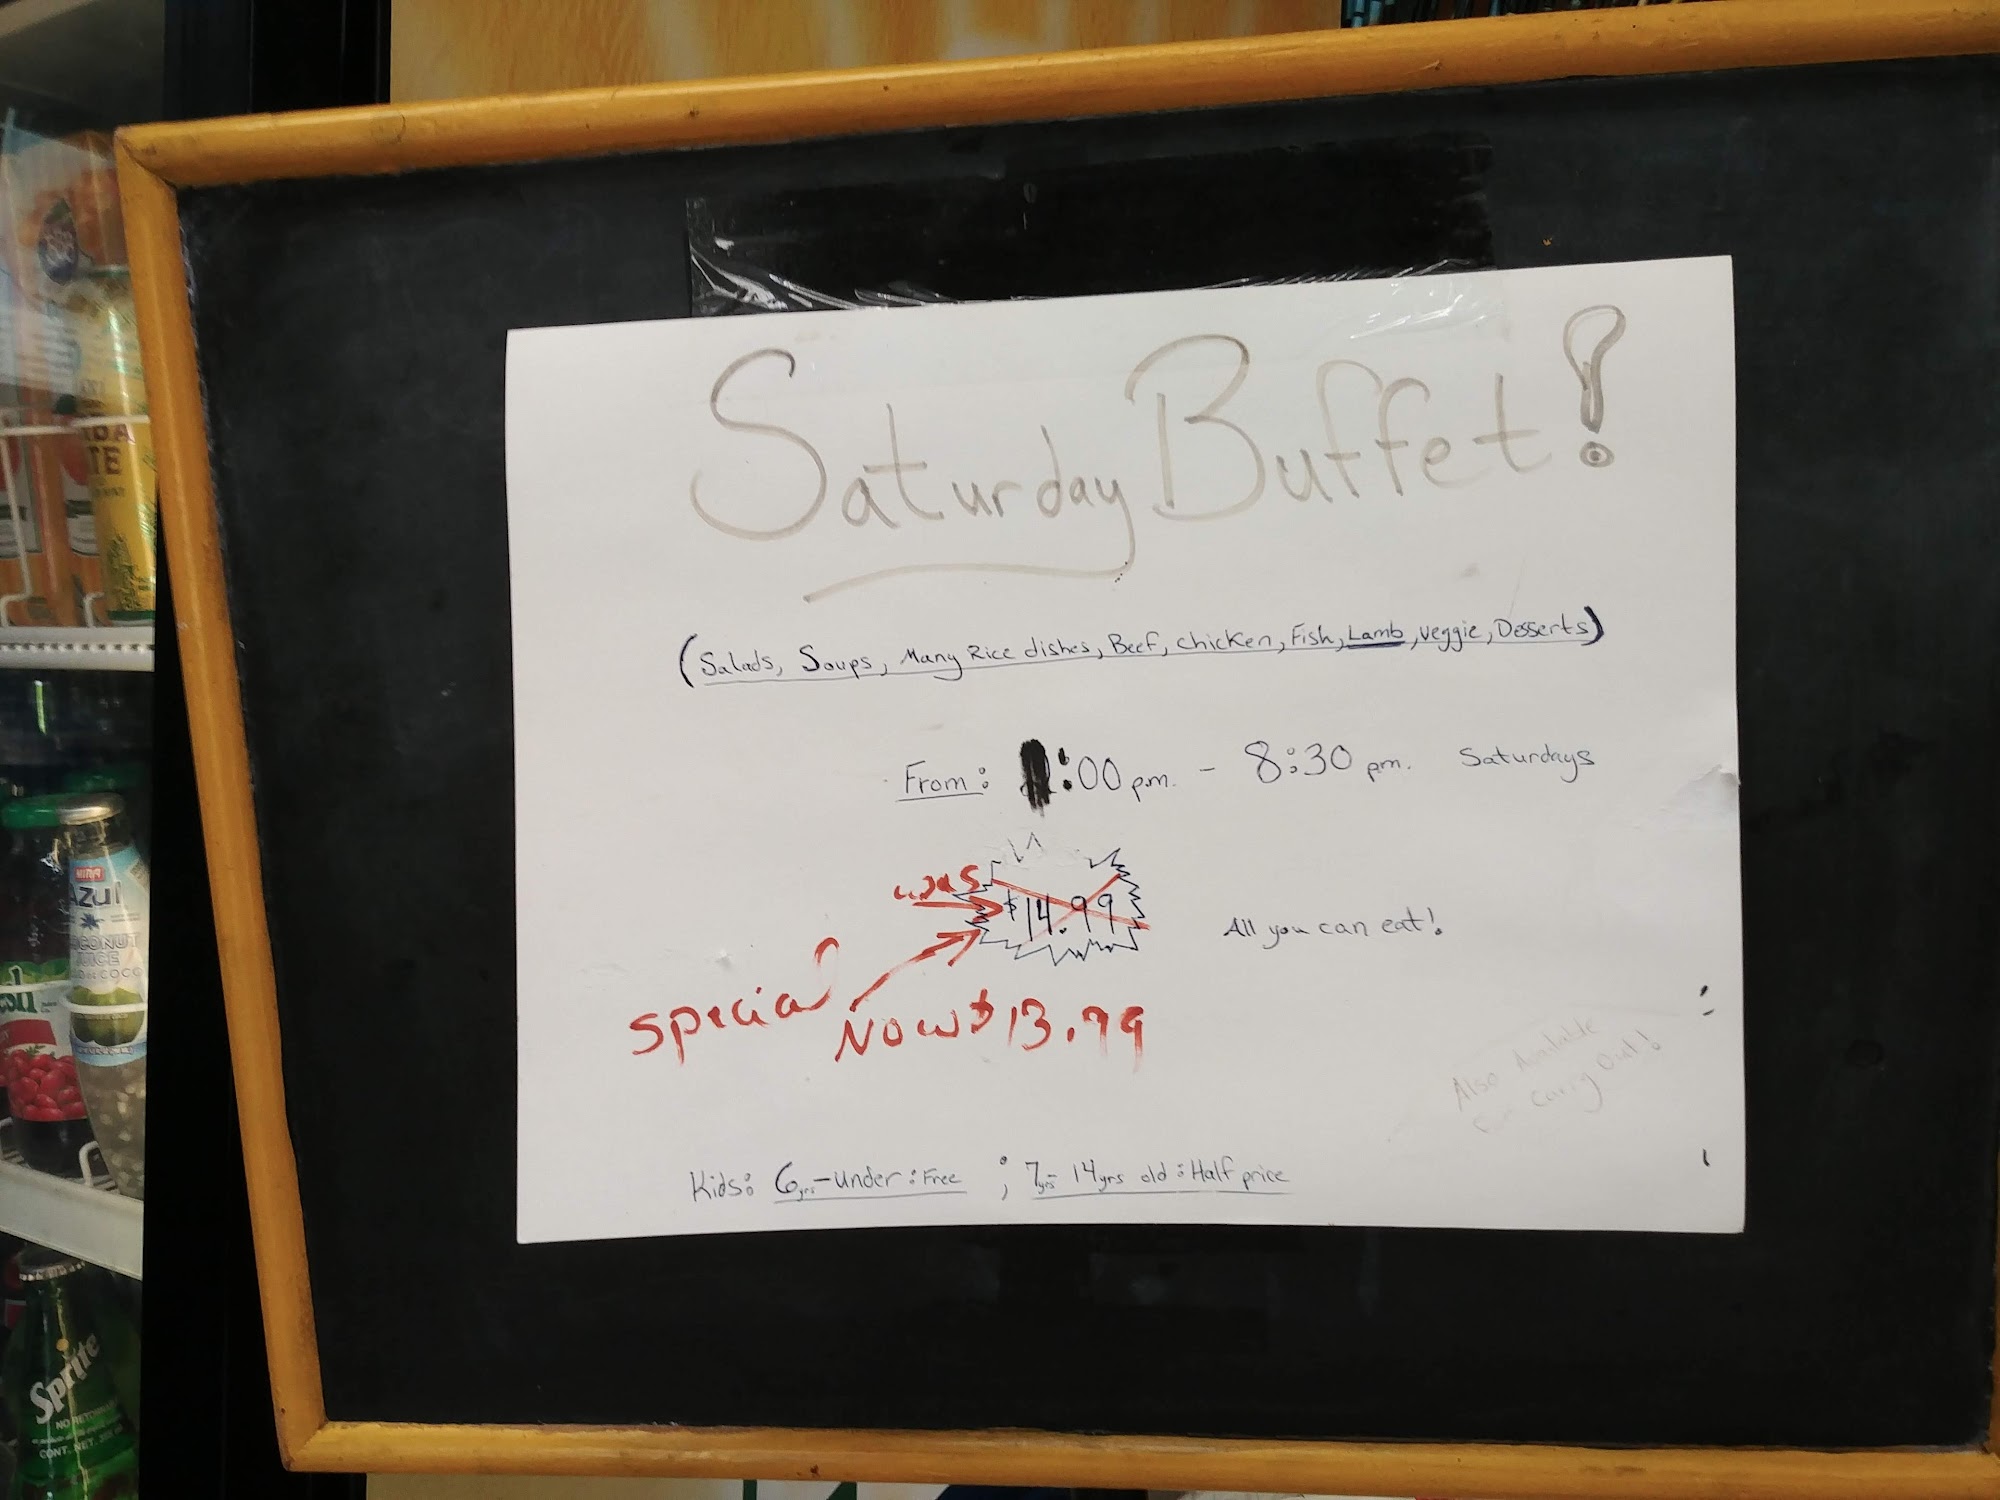 Saturday Buffet!
(Salads, Soups, Many Rice dishes, Beef, chicken, Fish, Lamb, veggie, Desserts)
From: 1:00 p.m. - 8:30 pm. Saturdays
was $14.99 All you can eat!
special Now $13.99
Also Available
For Carry Out!
Kids: 6yrs-under: Free ; 7yrs- 14yrs old: Half price
TE
Azul
COCONUT
JUICE
COCO
Sprite
NO RETORNABLE
CONT. NET.